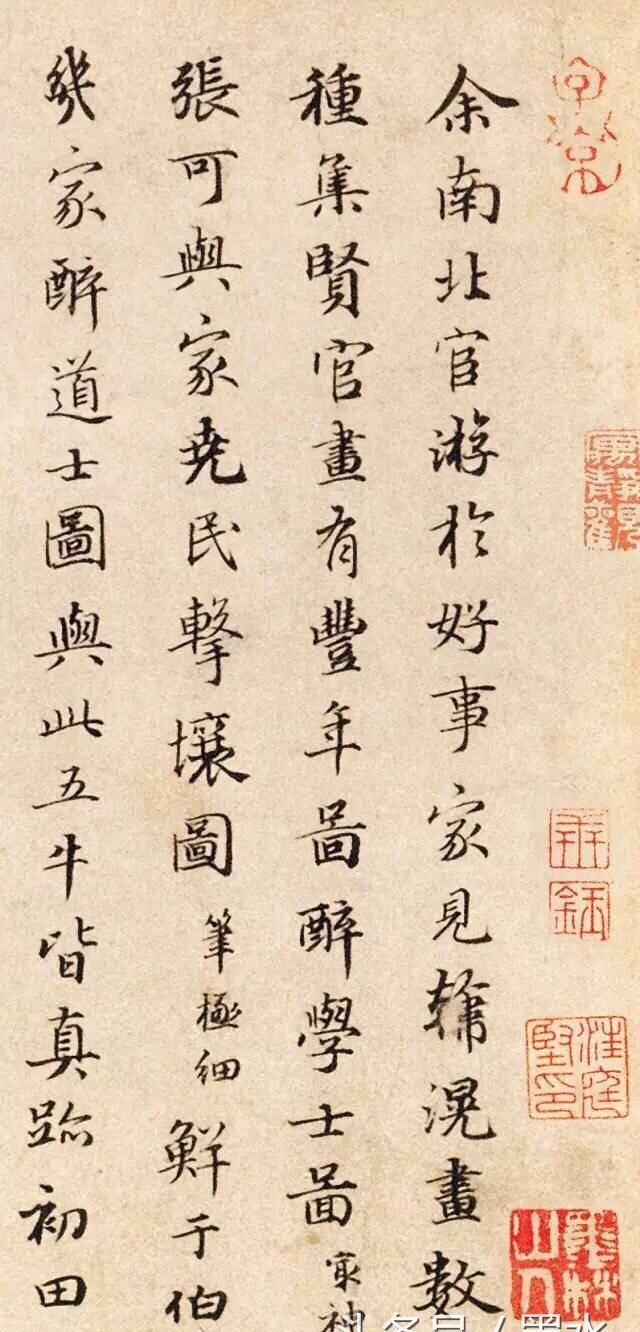 余南北官游於好事家見韓滉畫數
種集賢官畫有豐年啚醉學士啚㝡神
張可與家堯民擊壤圖筆極細鮮于伯
幾家醉道士圖與此五牛皆真跡初田
汪庭堅印